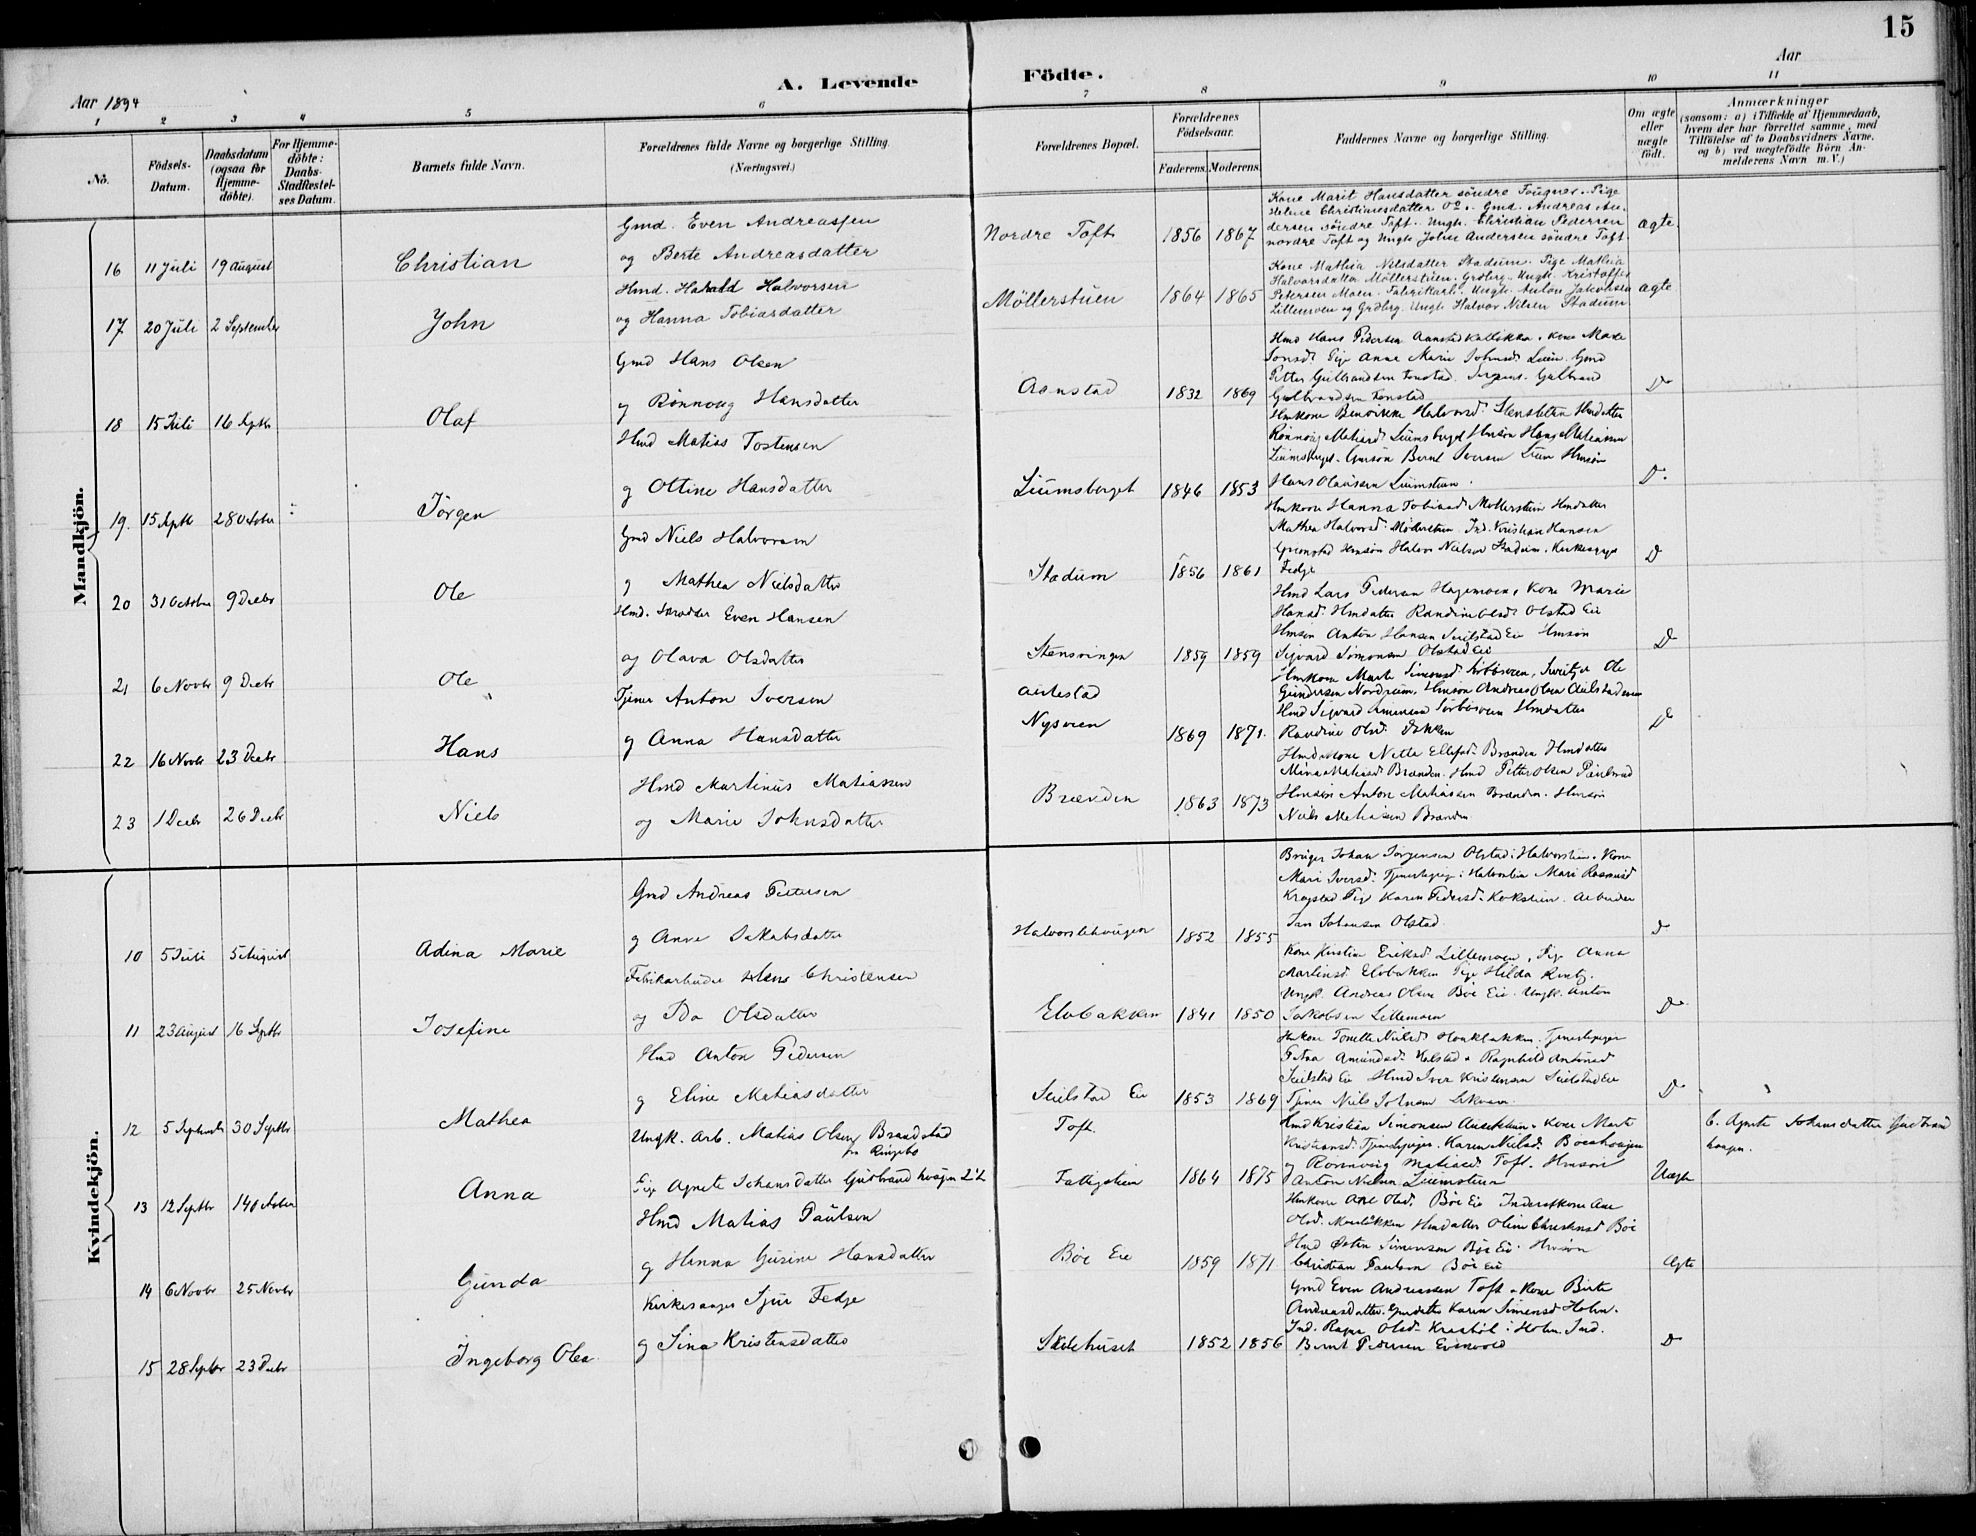 15
A. Levende Födte.
Aar 1894
Aar
1 2 3 4 5 6 7 8 9 10 11
No.
Födsels-Datum.
Daabsdatum (ogsaa for Hjemme-döbte).
For Hjemme-döbte: Daabs-Stadfæstel-ses Datum.
Barnets fulde Navn.
Forældrenes fulde Navne og borgerlige Stilling.
(Næringsvei.)
Forældrenes Bopæl.
Forældrenes Födselsaar.
Faderens. Moderens.
Faddernes Navne og borgerlige Stilling.
Om ægte eller uægte födt.
Anmærkninger
(saasom: a) i Tilfælde af Hjemmedaab,
hvem der har forrettet samme, med
Tilföielse af to Daabsvidners Navne.
og b) ved uægtefödte Börn An-
melderens Navn m. V.)
Mandkjön.
16 11 Juli 19 august Christian
Gmd. Even Andreassen
og Berte Andreasdatter
Nordre Toft 1856 1867
Kone Marit Hansdatter söndre Fougner. Pige
Helene Christinesdatter Do. Gmd. Andreas An-
dersen söndre Toft. Ungk. Christian Pedersen
nordre Toft og Ungk. John Andersen söndre Toft
ægte
17 20 Juli 2 September John
Hmd. Harald Halvorsen
og Hanna Tobiasdatter
Möllerstuen 1864 1865
Kone Mathia Nilsdatter Stadum. Pige Mathia
Halvorsdatter Möllerstuen. Grdbrg. Ungk. Kristoffer
Petersen Moen. Fabrikarb. Ungk. Anton Jakobsen
Lillemoen og Grdbrg. Ungk. Halvor Nilsen Stadum
ægte
18 15 Juli 16 Septbr Olaf
Gmd Hans Olsen
og Rönnoug Hansdatter
Aanstad 1832 1869
Hmd Hans Pedersen
Anne Marie Johnsd.
Petter Gulbrandsen
Gulbrandsen
Do
19. 15 Septb 28 October Jörgen
Hmd Matias Tostensen
og Oltine Hansdatter
Liumsberget 1846 1853
Rönnoug Matiasd. Liumsberget Hmsön Hans Matiassen
Liumsberget. Gmsön Bernt Iversen Lium Hmsön
Hans Olaussen Liumstuen.
Do.
20 31 October 9 Decbr Ole
Gmd Niels Halvorsen
og Mathea Nielsdatter
Stadum 1856 1861
Hmkone Hanna Tobiasd. Möllerstuen Hmdatter
Mathea Halvorsd. Möllerstuen Ind. Kristian Hansen
Hmsön Halvor Nielsen Stadum. Kirkesanger
Fedje
Do
21 6 Novbr 9 Decbr Ole
Hmd. Skrædder Even Hansen
og Olava Olsdatter
Stensvingen 1859 1859
Hmd Lars Pedersen Hagemoen, Kone Marie
Hansd. Hmdatter Randine Olsd. Olstad Eie
Hmsön Anton Hansen Seilstad Eie Hmsön
Sigvard Simonsen Olstad Eie
Do
22 16 Novbr 23 Decbr Hans
Tjener Anton Iversen
og Anna Hansdatter
Aulestad
Nysveen 1869 1871.
Hmkone Marte Simensd.
Gundersen Nordrum, Hmsön Andreas Olsen
Hmd Sigvard Simensen Hmdatter
Randine Olsd. Bakken
Do
23 1 Decbr 26 Decbr Niels
Hmd Martinus Matiassen
og Marie Johnsdatter
Brænden 1863 1873
Hmdskone Nette Ellefsd. Brænden Hmdatter
Mina Matiasd. Brænden. Hmd Petter Olsen
Hmsön Anton Matiassen Brænden. Hmsön
Niels Matiasen Brænden
Kvindekjön.
10 5 Juli 5 August Adina Marie
Gmd Andreas Pettersen
og Anne Jakobsdatter
Halvorslihougen 1852 1855
Bruger Johan Jörgensen Olstad i Halvorslien. Kone
Mari Iversd. Tjenestepige i Halvorslien Mari Rasmusd
Pige Karen Pedersd. Arbeider
Jan Johansen Olstad.
Do
11 23 August 16 Septbr Josefine
Fabrikarbeider Hans Christensen
og Ida Olsdatter
Elvebakken 1841 1850
Kone Kristine Eriksd. Lillemoen, Pige Anna
Martinsd. Elvebakken Pige Hilda
Ungk. Andreas Olsen Böe Eie. Ungk. Anton
Jakobsen Lillemoen
Do
12 5 September 30 Septbr Mathea
Hmd Anton Pedersen
og Eline Matiasdatter
Seilstad Eie 1853 1869
Hmkone Tonette Nielsd. Tjenestepiger
Petra Amundsd. og Ragnhild Antonsd
Seilstad Eie Hmd Iver Kristensen Seilstad Eie
Tjener Niels Johnsen
Do
13 12 Septbr 14 October Anna
Ungk. Arb. Matias Olsen Brandstad
fra Ringebo
Pige Agnete Johansdatter Gudbrandhaugen
Toft
Fattigstuen 1864 1875
Hmd Kristian Simonsen Kone Marte
Kristiansd. Tjenestepiger Karen Nielsd. Böeshougen
og Rönnoug Matiasd. Toft. Hmsön
Anton Nielsen Liumstuen
Uægte
b. Agnete Johansdatter Gudbrand
haugen.
14 6 Novbr 25 Novbr Gunda
Hmd Matias Paulsen
og Hanna Gurine Hansdatter
Böe Eie 1859 1871
Hmkone Ane Olsd. Böe Eie Inderstkone Ane
Olsd. Hmdatter Oline Christensd Böe
Hmd Östen Simensen Böe Eie. Hmsön
Christian Paulsen Böe Eie
Ægte
15 28 Septbr 23 Decbr Ingeborg Olea
Kirkesanger Sjur Fedje
og Sina Kristensdatter
Skolehuset 1852 1856
Gmd Even Andreassen Toft. Kone Birte
Andreasdatter. Gmdatter Karen Simensd Holm.
Ind. Olsd. i Holm. Ind.
Bernt Pedersen Evenvold
Do